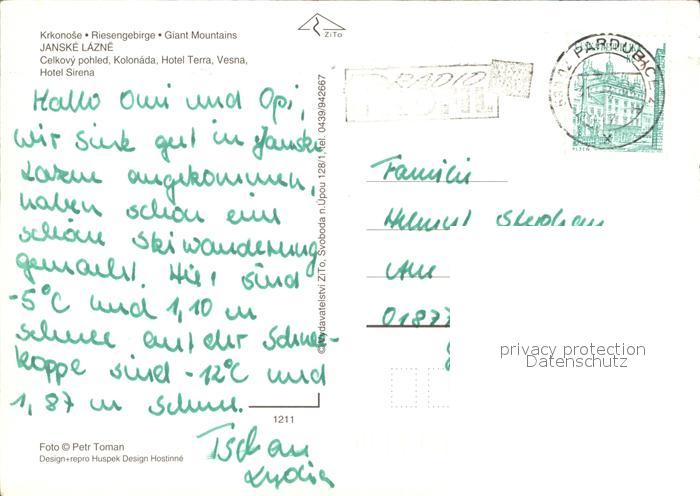 Krkonoše • Riesengebirge • Giant Mountains
JANSKÉ LÁZNĚ
Celkový pohled, Kolonáda, Hotel Terra, Vesna,
Hotel Sirena
ZiTo
Hallo Omi und Opi,
wir sind gut in Janske
Lazne angekommen,
haben schon eine
schöne Skiwanderung
gemacht. Hier sind
-5°C und 1,10 m
Schnee auf der Schnee-
koppe sind -12°C und
1,87 m Schnee.
Tschau
Lydia
© Vydavatelství ZiTo, Svoboda n.Úpou 128/1,tel. 0439/942667
1211
Foto © Petr Toman
Design+repro Huspek Design Hostinné
RADIO
PARDUBICE 2
PLZEŇ
Familie
Helmut
Am
01877
privacy protection
Datenschutz